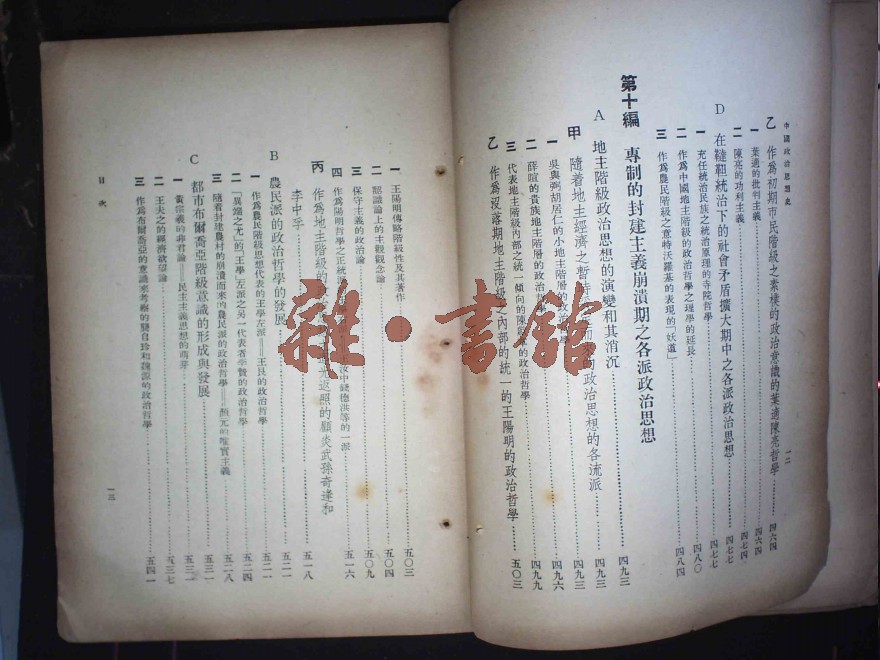 中國政治思想史
一二
乙 作爲初期市民階級之素樸的政治意識的葉適陳亮哲學 四六四
一 葉適的批判主義 四六四
二 陳亮的功利主義 四七四
D 在韃靼統治下的社會矛盾擴大期中之各派政治思想 四七七
一 充任統治民族之統治原理的寺院哲學 四七七
二 作爲中國地主階級的政治哲學之理學的延長 四八〇
三 作爲農民階級之意特沃羅基的表現的「妖道」 四八四
第十編 專制的封建主義崩潰期之各派政治思想 四九三
A 地主階級政治思想的演變和其消沉 四九三
甲 隨着地主經濟之暫時 而 的政治思想的各流派 四九三
一 吳與弼胡居仁的小地主階層的政治哲學 四九六
二 薛瑄的貴族地主階層的政治哲學 四九九
三 代表地主階級內部之統一傾向的陳 的政治哲學 四九九
乙 作爲沒落期地主階級之內部的統一的王陽明的政治哲學 五〇三
一 王陽明傳略階級性及其著作 五〇三
二 認識論上的主觀觀念論 五〇四
三 保守主義的政治論 五〇九
四 作爲陽明哲學之正統 汝中錢德洪等的一派 五一六
丙 作爲地主階級的 返照的顧炎武孫奇逢和
李中孚 五一八
B 農民派的政治哲學的發展 五二一
一 作爲農民階級思想代表的王學左派——王艮的政治哲學 五二一
二 「異端之尤」的「王學」左派之另一代表者李贄的政治哲學 五二四
三 隨着封建農村的崩潰而來的農民派的政治哲學——顏元的唯實主義 五二八
C 都市布爾喬亞階級意識的形成與發展 五三一
一 黃宗羲的非君論——民主主義思想的萌芽 五三一
二 王夫之的經濟欲望論 五三七
三 作爲布爾喬亞的意識來考察的龔自珍和魏源的政治哲學 五四一
目次
一三
雜·書館